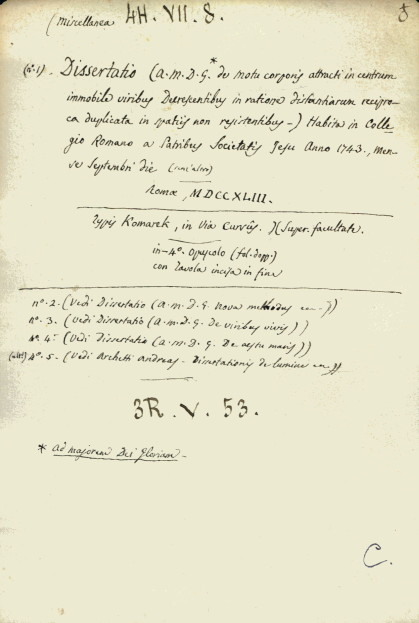 (miscellanea 4H. VII. 8.
(n°. 1). Dissertatio (a. m. D. G.* de motu corporis attracti in centrum
immobile viribus Decrescentibus in ratione distantiarum recipro-
ca duplicata in spatiis non resistentibus -) Habita in Colle-
gio Romano a Patribus Societatis Jesu Anno 1743., Men-
se Septembri die
Romæ, MDCCXLIII.
typis Komarek, in Via Cursûs. )( Super. facultate.
in-4°. Opuscolo (fol. dopp.)
con tavola incisa in fine
n°. 2. (Vedi Dissertatio (a. m. D. G. Nova methodus ))
n°. 3. (Vedi Dissertatio (a. m. D. G. De viribus vivis))
n°. 4. (Vedi Dissertatio (a. m. D. G. De aestu maris))
n°. 5. (Vedi Archetti Andreas. Dissertationis de lumine ))
3R. V. 53.
* Ad majorem Dei Gloriam -
C.